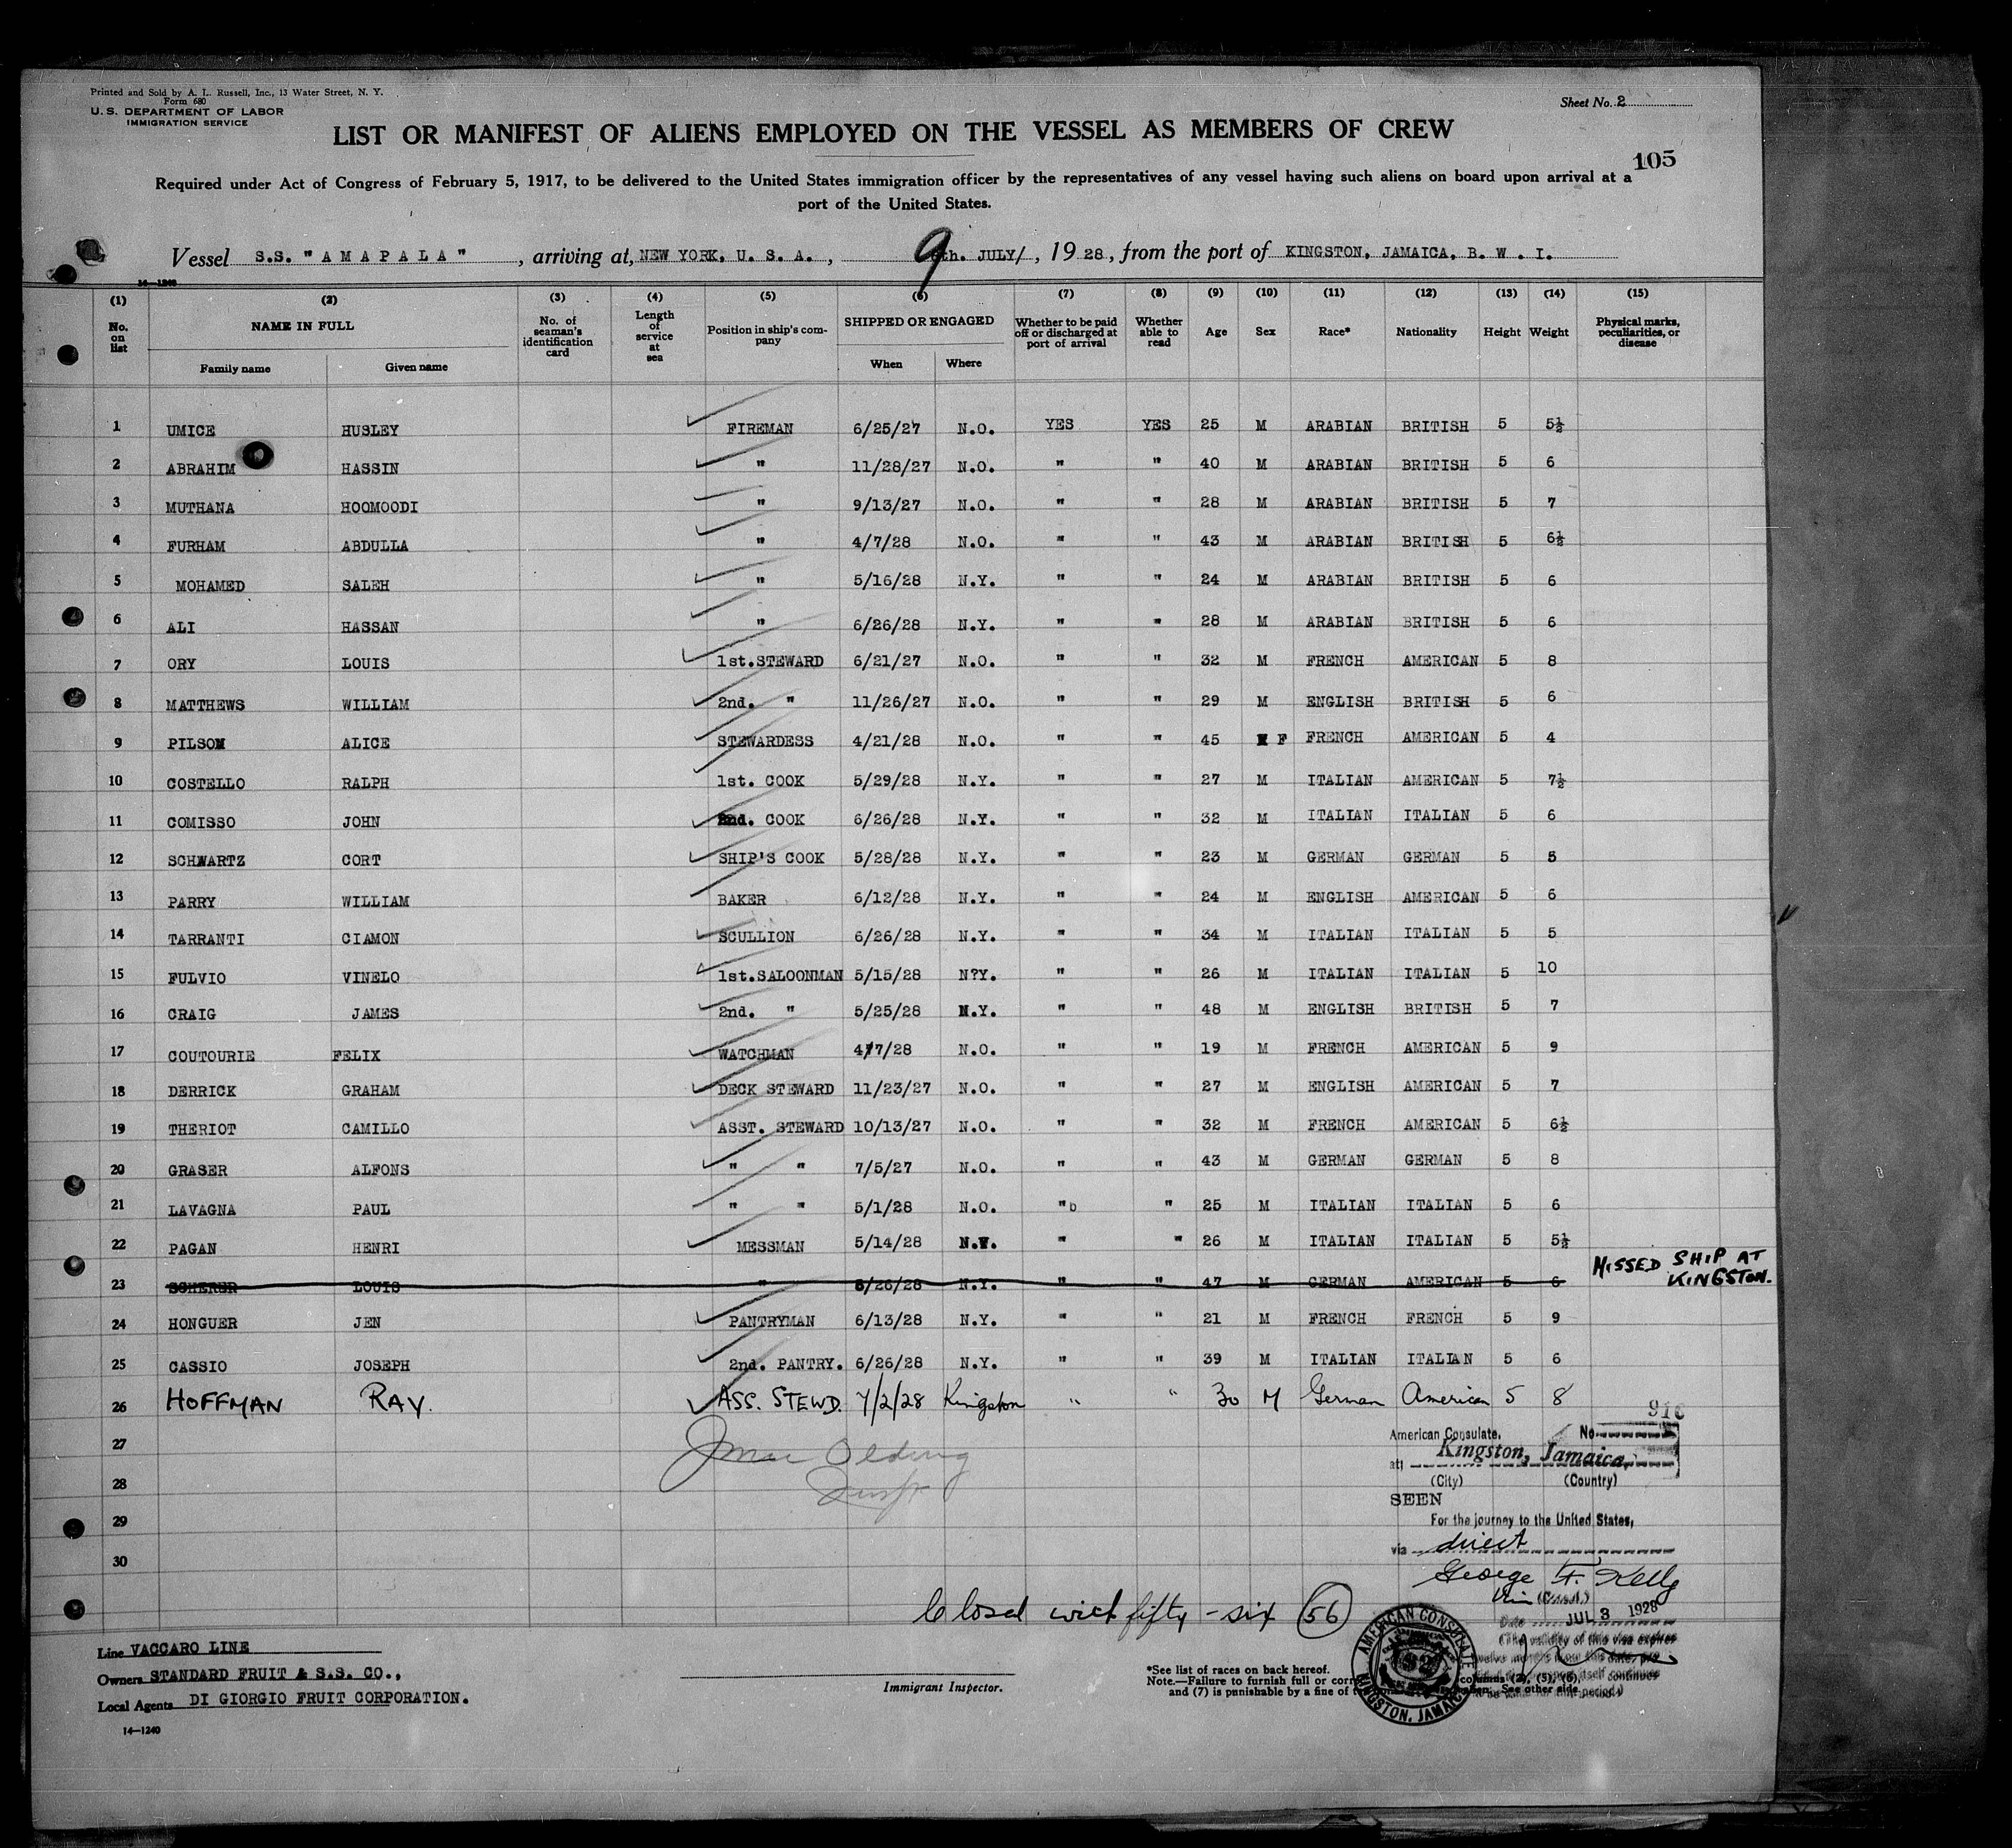 Printed and Sold by A. L. Russell, Inc., 13 Water Street, N. Y.
Form 680
U. S. DEPARTMENT OF LABOR
IMMIGRATION SERVICE
Sheet No. 2
LIST OR MANIFEST OF ALIENS EMPLOYED ON THE VESSEL AS MEMBERS OF CREW
105
Required under Act of Congress of February 5, 1917, to be delivered to the United States immigration officer by the representatives of any vessel having such aliens on board upon arrival at a
port of the United States.
Vessel S.S. "AMAPALA", arriving at, NEW YORK, U. S. A., 9th. JULY/, 1928, from the port of KINGSTON, JAMAICA, B. W. I.
14—1240
(1) (2) (3) (4) (5) (6) (7) (8) (9) (10) (11) (12) (13) (14) (15)
No. on list NAME IN FULL Family name Given name No. of seaman's identification card Length of service at sea Position in ship's company SHIPPED OR ENGAGED When Where Whether to be paid off or discharged at port of arrival Whether able to read Age Sex Race* Nationality Height Weight Physical marks, peculiarities, or disease
1 UMICE HUSLEY FIREMAN 6/25/27 N.O. YES YES 25 M ARABIAN BRITISH 5 5½
2 ABRAHIM HASSIN " 11/28/27 N.O. " " 40 M ARABIAN BRITISH 5 6
3 MUTHANA HOOMOODI " 9/13/27 N.O. " " 28 M ARABIAN BRITISH 5 7
4 FURHAM ABDULLA " 4/7/28 N.O. " " 43 M ARABIAN BRITISH 5 6½
5 MOHAMED SALEH " 5/16/28 N.Y. " " 24 M ARABIAN BRITISH 5 6
6 ALI HASSAN " 6/26/28 N.Y. " " 28 M ARABIAN BRITISH 5 6
7 ORY LOUIS 1st.STEWARD 6/21/27 N.O. " " 32 M FRENCH AMERICAN 5 8
8 MATTHEWS WILLIAM 2nd. " 11/26/27 N.O. " " 29 M ENGLISH BRITISH 5 6
9 PILSON ALICE STEWARDESS 4/21/28 N.O. " " 45 F FRENCH AMERICAN 5 4
10 COSTELLO RALPH 1st. COOK 5/29/28 N.Y. " " 27 M ITALIAN AMERICAN 5 7½
11 COMISSO JOHN 2nd. COOK 6/26/28 N.Y. " " 32 M ITALIAN ITALIAN 5 6
12 SCHWARTZ CORT SHIP'S COOK 5/28/28 N.Y. " " 23 M GERMAN GERMAN 5 5
13 PARRY WILLIAM BAKER 6/12/28 N.Y. " " 24 M ENGLISH AMERICAN 5 6
14 TARRANTI CIAMON SCULLION 6/26/28 N.Y. " " 34 M ITALIAN ITALIAN 5 5
15 FULVIO VINELO 1st.SALOONMAN 5/15/28 N?Y. " " 26 M ITALIAN ITALIAN 5 10
16 CRAIG JAMES 2nd. " 5/25/28 N.Y. " " 48 M ENGLISH BRITISH 5 7
17 COUTOURIE FELIX WATCHMAN 4/7/28 N.O. " " 19 M FRENCH AMERICAN 5 9
18 DERRICK GRAHAM DECK STEWARD 11/23/27 N.O. " " 27 M ENGLISH AMERICAN 5 7
19 THERIOT CAMILLO ASST. STEWARD 10/13/27 N.O. " " 32 M FRENCH AMERICAN 5 6½
20 GRASER ALFONS " " 7/5/27 N.O. " " 43 M GERMAN GERMAN 5 8
21 LAVAGNA PAUL " " 5/1/28 N.O. "b " 25 M ITALIAN ITALIAN 5 6
22 PAGAN HENRI MESSMAN 5/14/28 N.Y. " " 26 M ITALIAN ITALIAN 5 5½
23 SCHERER LOUIS " 6/26/28 N.Y. " " 47 M GERMAN AMERICAN 5 6 MISSED SHIP AT KINGSTON.
24 HONGUER JEN PANTRYMAN 6/13/28 N.Y. " " 21 M FRENCH FRENCH 5 9
25 CASSIO JOSEPH 2nd. PANTRY. 6/26/28 N.Y. " " 39 M ITALIAN ITALIAN 5 6
26 HOFFMAN RAY. ASS. STEWD. 7/2/28 Kingston " " 30 M German American 5 8
27
28
29
30
Olding
Insp
American Consulate, No. 916
at Kingston, Jamaica.
(City) (Country)
SEEN
For the journey to the United States,
via direct
George F. Kelly
Vice (Consul.)
Date JUL 3 1928
(The validity of this visa expires
Closed with fifty-six (56)
AMERICAN CONSULATE
KINGSTON, JAMAICA
Line VACCARO LINE
Owners STANDARD FRUIT & S.S. CO.,
Local Agents DI GIORGIO FRUIT CORPORATION.
14—1240
Immigrant Inspector.
*See list of races on back hereof.
Note.—Failure to furnish full or columns (2), (5), (6),
and (7) is punishable by a fine of See other side